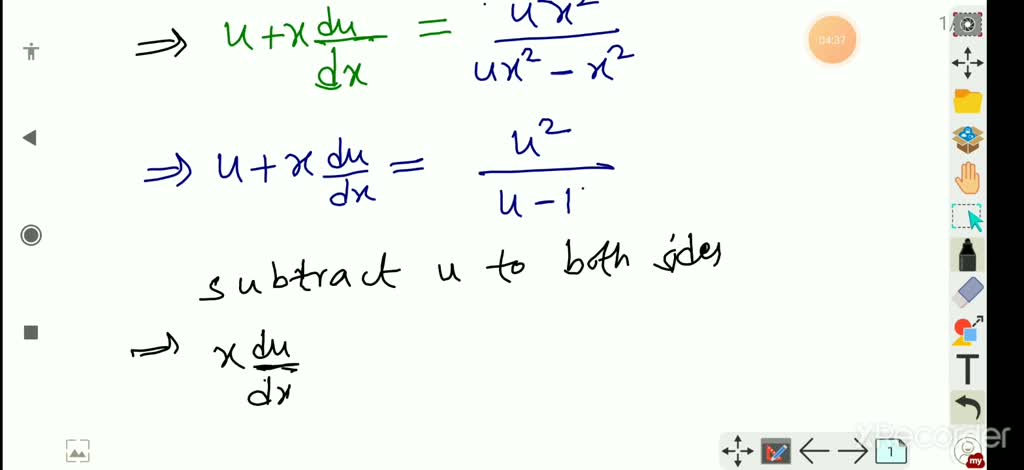 ⇒ u + x du/dx = ux²/(ux² − x²)
1/
04:37
⇒ u + x du/dx = u²/(u − 1)
subtract u to both sides
⇒ x du/dx
T
XRecorder
1
my